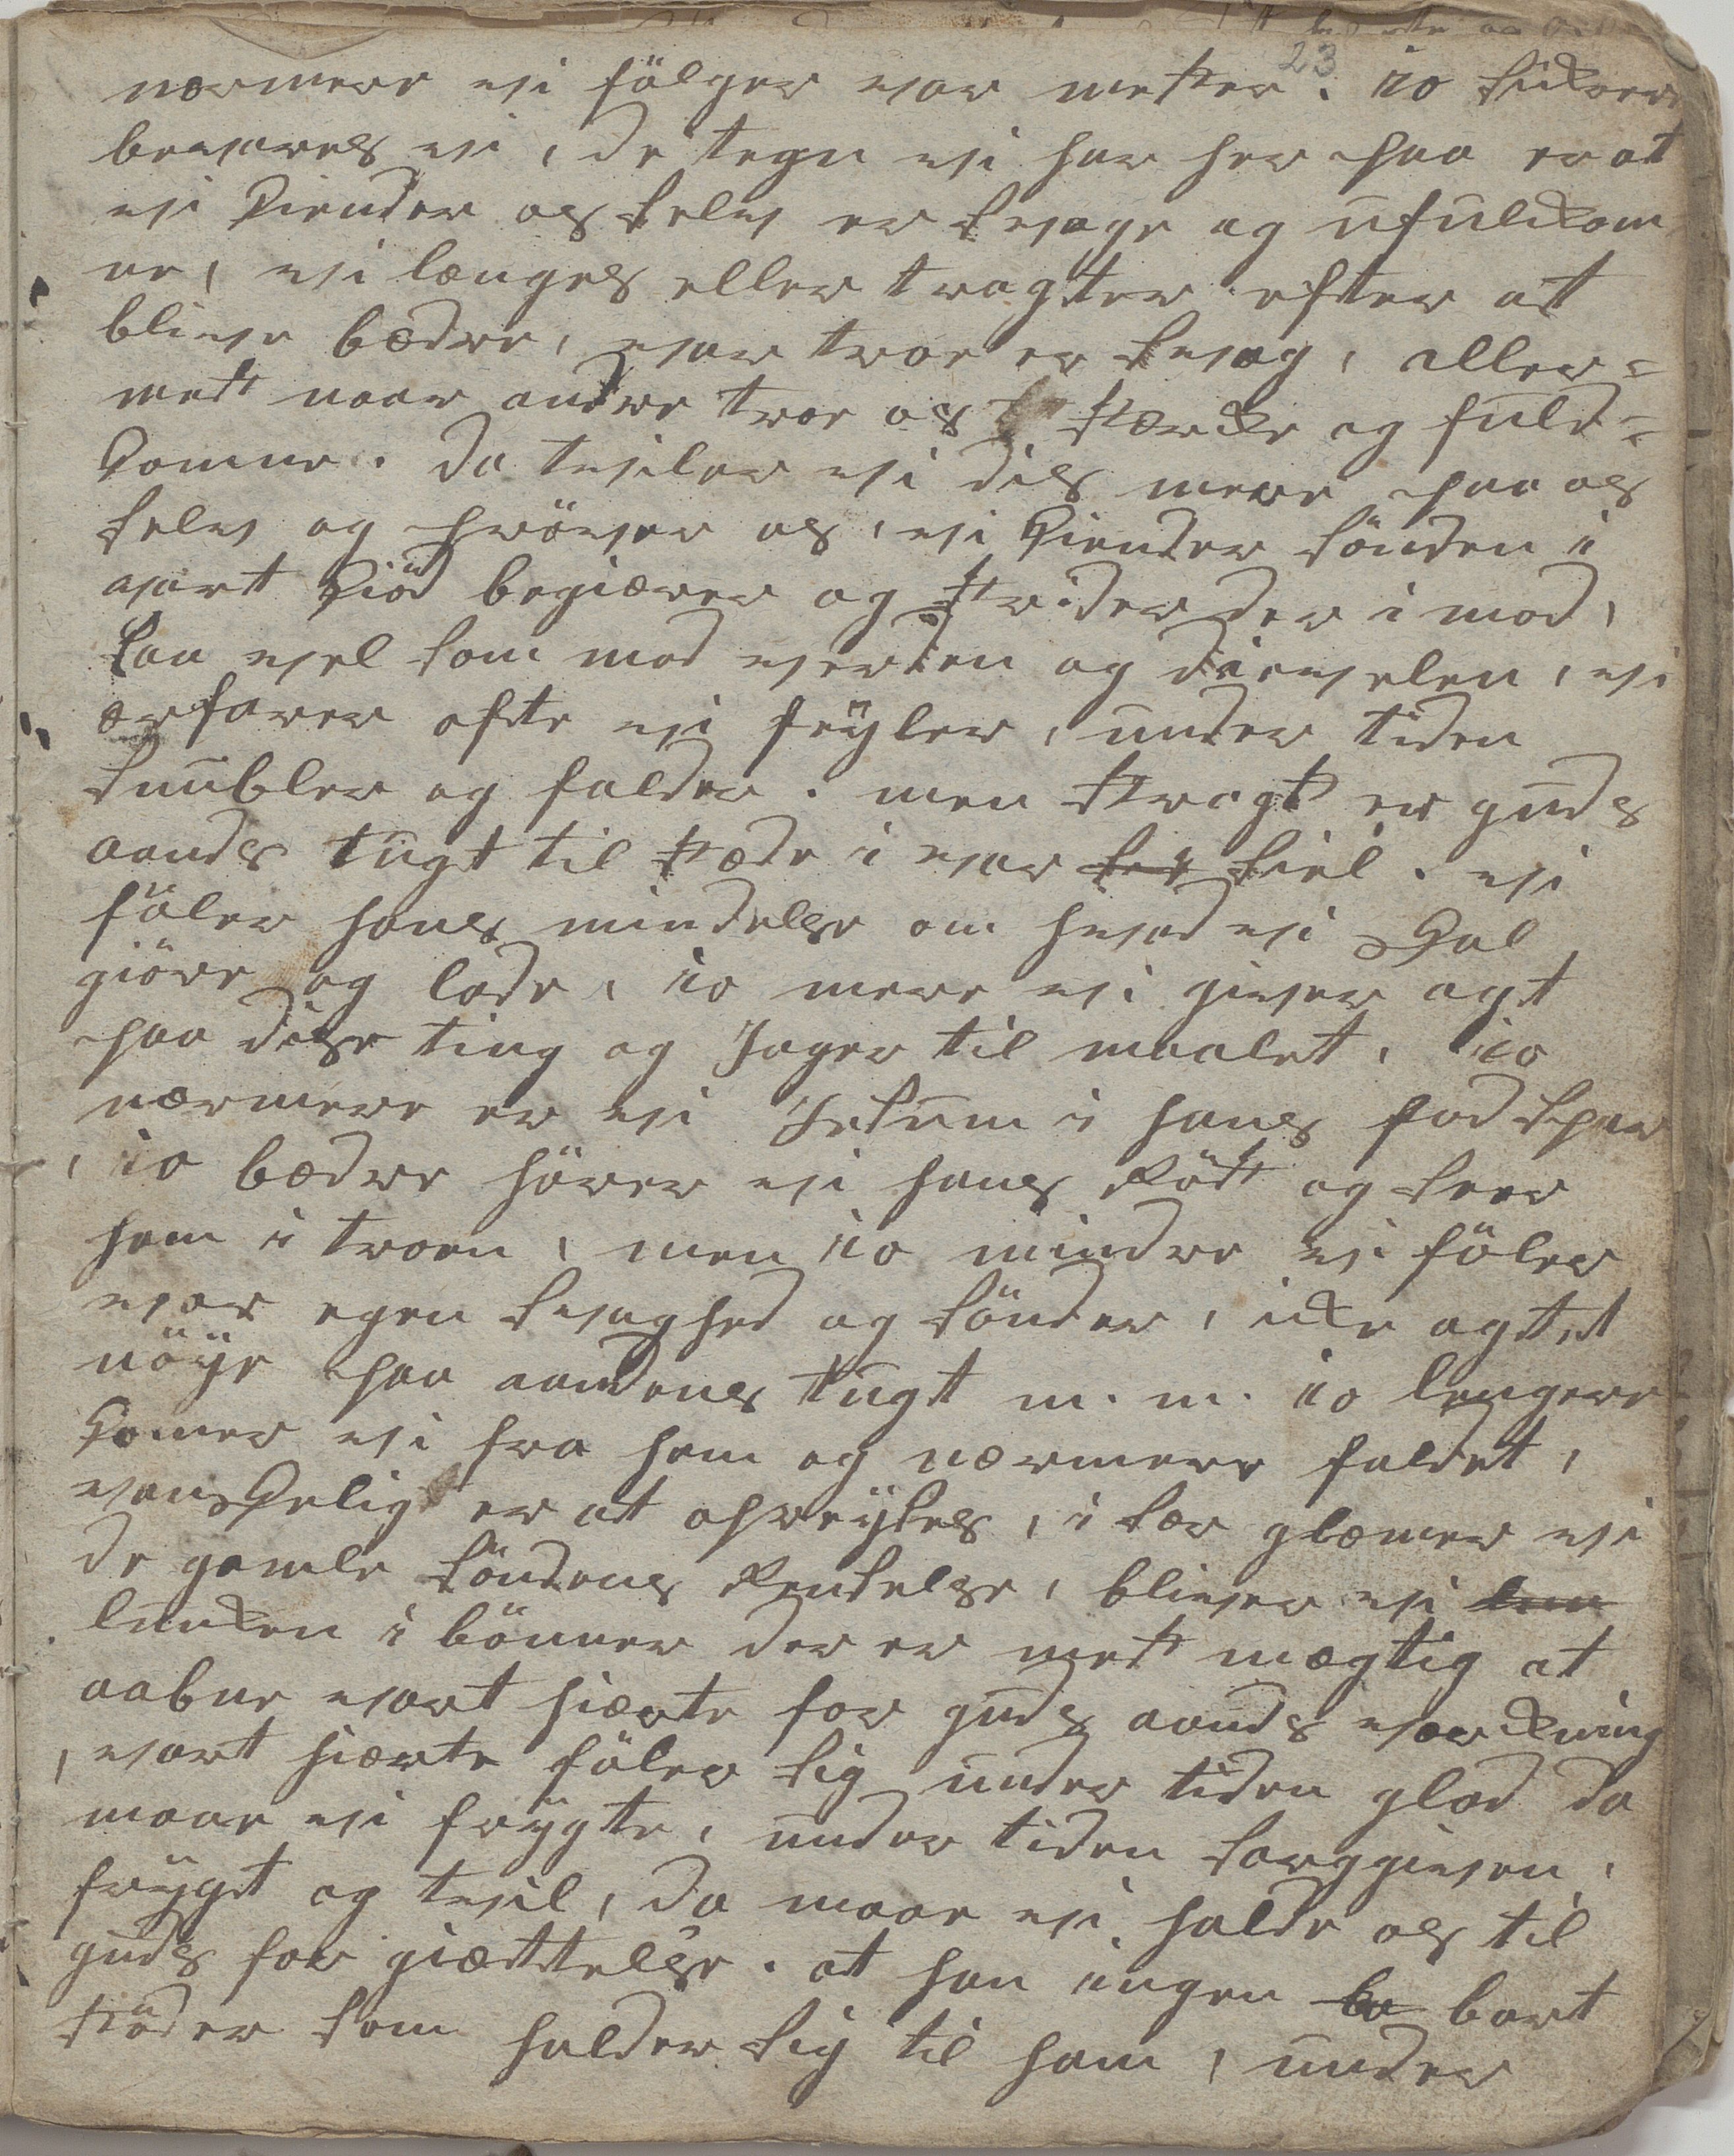 23
nærmere vi fölger vor mester. io sikere
bevares vi, de tegn vi har her paa er at
vi kiender os selv er svage og ufulkom
ne, vi længes eller tragter efter at
blive bædre, vor troe er svag, aller=
mest naar andre troe os stærke og fuld=
komne. da tviler vi dis mere paa os
selv og pröver os, vi kiender sönden i
vort kiöd begiærer og strider der i mod,
saa vel som mod verden og dievelen, vi
erfarer ofte vi feÿler, under tiden
snubler og falder. men stragt er guds
aands tugt til stæde i vor siel. vi
föler hans mindelse om hvad vi skal
giöre og lade, io mere vi giver agt
paa disse ting og Jager til maalet, io
nærmere er vi Jesum i hans fod spor
, io bædre hörer vi hans Röst og seer
ham i troen, men io mindre vi föler
vor egen svaghed og sönder, ike agtet
nöÿe paa aandens tugt m. m. io lengere
komer vi fra ham og nærmere faldet,
vanskelig er at opreÿses, i sær glæmer vi
de gamle söndens Rendelse, bliver vi
lunken i bönner der er mest mægtig at
aabne vort hierte for guds aands verkning
, vort hierte föler sig under tiden glad da
maae vi frÿgte, under tiden sorggiven,
frÿgt og tvil, da maae vi holde os til
guds for giættelse. at han ingen bort
stöder som holder sig til ham, under